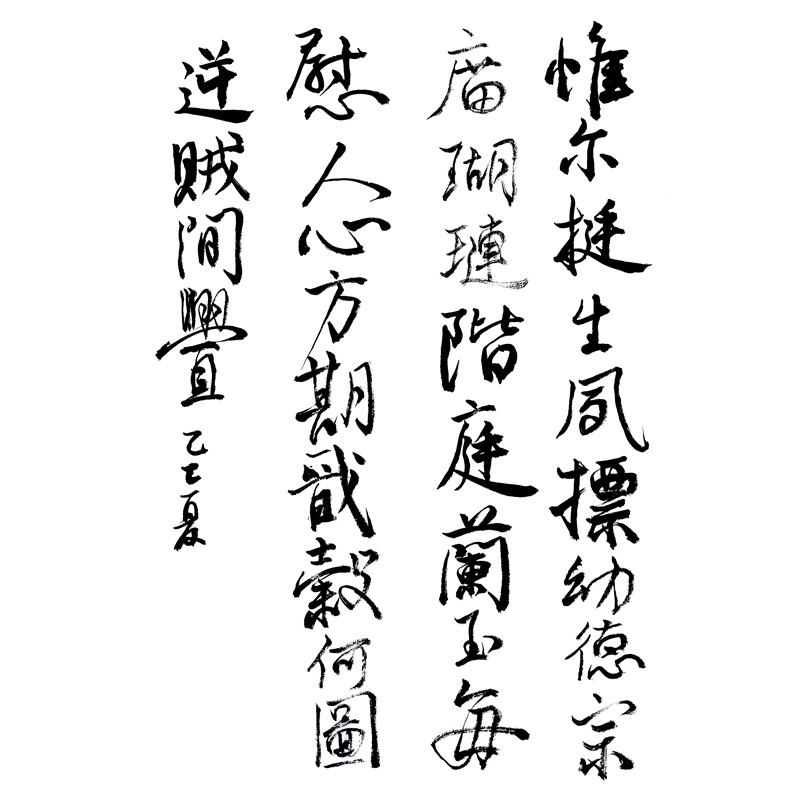 惟尔挺生夙標幼德宗
庿瑚璉階庭蘭玉每
慰人心方期戩穀何圖
逆賊間釁乙巳夏